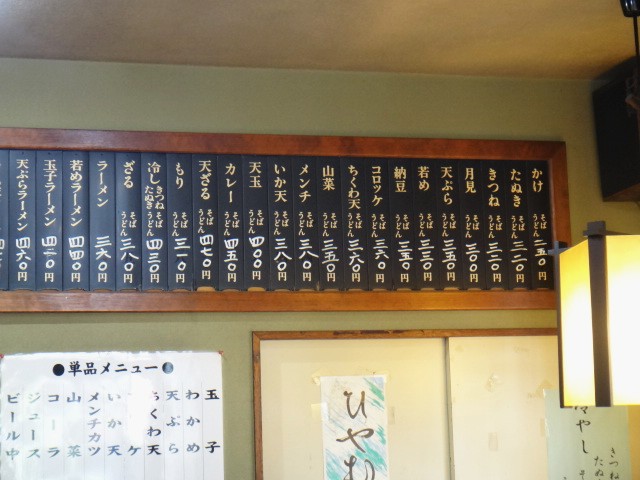 かけ そば うどん 二五〇円
たぬき そば うどん 三二〇円
きつね そば うどん 三二〇円
月見 そば うどん 三〇〇円
天ぷら そば うどん 三五〇円
若め そば うどん 三三〇円
納豆 そば うどん 三五〇円
コロッケ そば うどん 三六〇円
ちくわ天 そば うどん 三六〇円
山菜 そば うどん 三五〇円
メンチ そば うどん 三八〇円
いか天 そば うどん 三八〇円
天玉 そば うどん 四〇〇円
カレー そば うどん 四五〇円
天ざる そば うどん 四七〇円
もり そば うどん 三一〇円
冷し きつね たぬき そば うどん 四三〇円
ざる そば うどん 三八〇円
ラーメン 三六〇円
若めラーメン 四四〇円
玉子ラーメン 四一〇円
天ぷらラーメン 四六〇円
●単品メニュー●
玉子
わかめ
天ぷら
ちくわ天
いか天
メンチカツ
山菜
コーラ
ジュース
ビール中
ひやむ
冷やし
きつね
たぬ